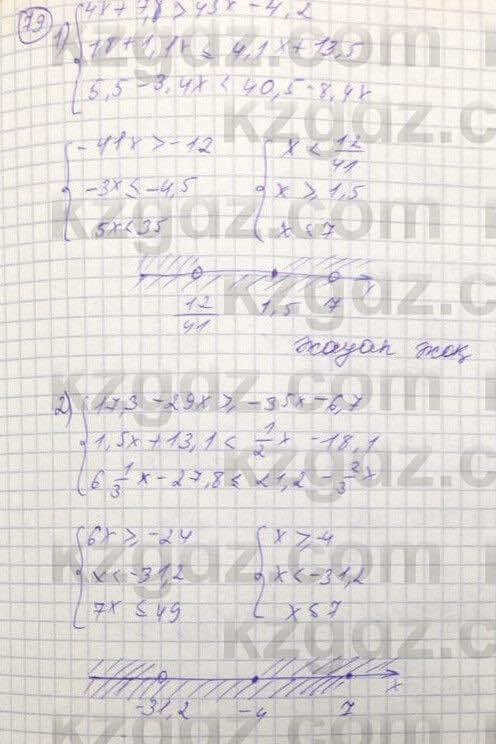 79
1) { 4x + 7,8 > 45x - 4,2
18 + 1,1x ≤ 4,1x + 13,5
5,5 - 3,4x < 40,5 - 8,4x
{ -41x > -12 { x < 12/41
-3x ≤ -4,5 x ≥ 1,5
5x < 35 x < 7
12/41 1,5 7 x
жауап жоқ
2) { 17,3 - 29x ≥ -35x - 6,7
1,5x + 13,1 < 1/2 x - 18,1
6 1/3 x - 27,8 ≤ 21,2 - 2/3 x
{ 6x ≥ -24 { x ≥ -4
x < -31,2 x < -31,2
7x ≤ 49 x ≤ 7
-31,2 -4 7 x
kzgdz.com